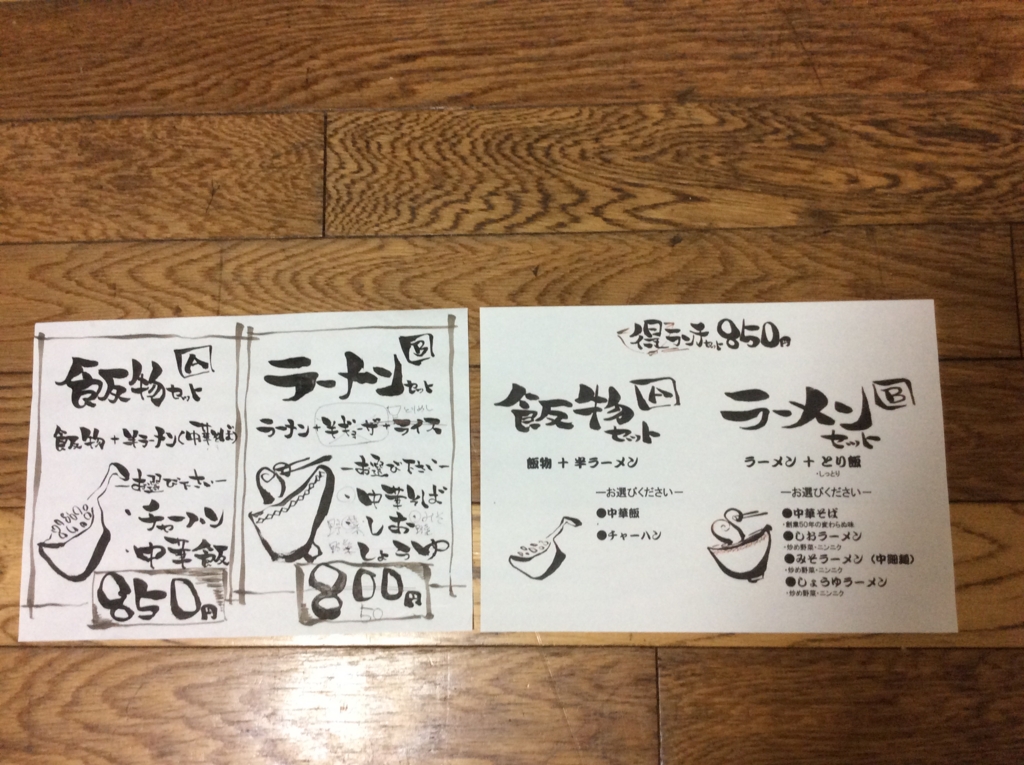 飯物セット A
飯物+半ラーメン(中華そば)
―お選び下さい―
・チャーハン
・中華飯
850円
ラーメンセット B
とりめし
ラーメン+半ギョーザ+ライス
―お選び下さい―
・中華そば
野菜 しお
野菜 しょうゆ
800円
50
得ランチセット850円
飯物セット A
飯物 + 半ラーメン
―お選びください―
●中華飯
●チャーハン
ラーメンセット B
ラーメン + とり飯
・しっとり
―お選びください―
●中華そば
・創業50年の変わらぬ味
●しおラーメン
・炒め野菜・ニンニク
●みそラーメン(中間麺)
・炒め野菜・ニンニク
●しょうゆラーメン
・炒め野菜・ニンニク